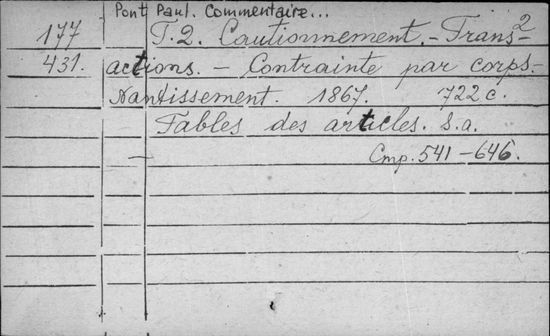 Pont Paul. Commentaire... 2
177 T.2. Cautionnement. - Trans-
431. actions. - Contrainte par corps. -
Nantissement. 1867. 722 c.
Tables des articles. S.a.
— Стр. 541 - 646.